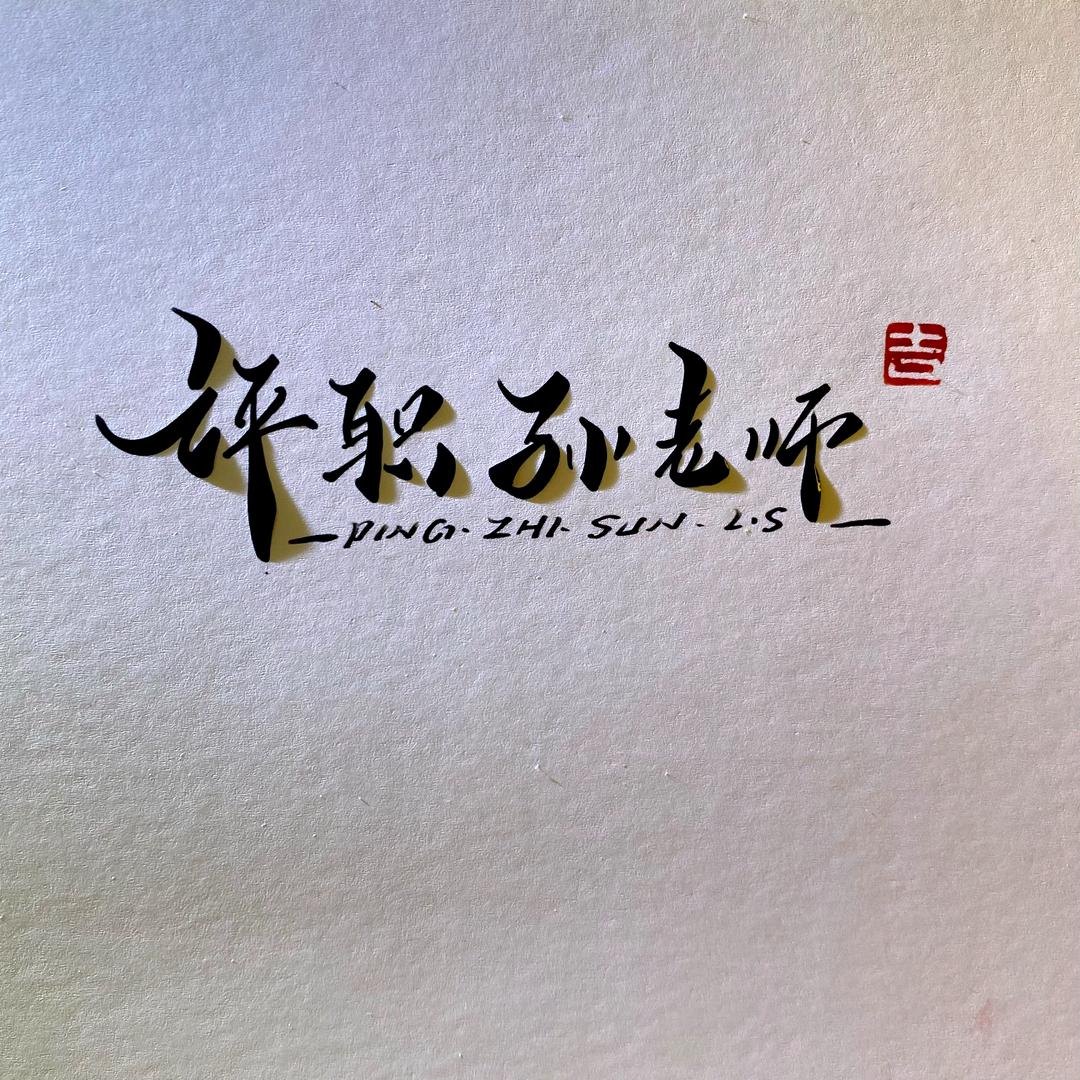 评职孙老师
PING·ZHI·SUN·L·S